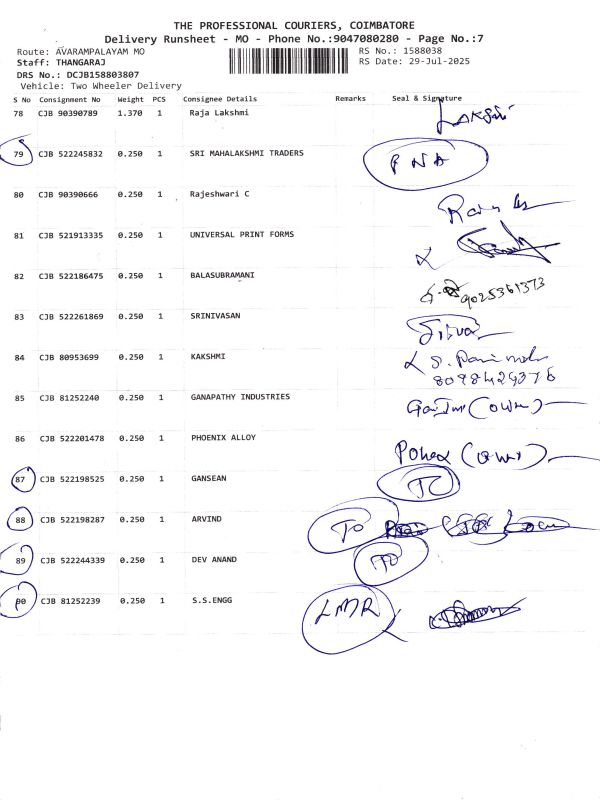 THE PROFESSIONAL COURIERS, COIMBATORE
Delivery Runsheet - MO - Phone No.:9047080280 - Page No.:7
Route: AVARAMPALAYAM MO
RS No.: 1588038
Staff: THANGARAJ
RS Date: 29-Jul-2025
DRS No.: DCJB158803807
Vehicle: Two Wheeler Delivery
S No Consignment No Weight PCS Consignee Details Remarks Seal & Signature
78 CJB 90390789 1.370 1 Raja Lakshmi
79 CJB 522245832 0.250 1 SRI MAHALAKSHMI TRADERS PNA
80 CJB 90390666 0.250 1 Rajeshwari C
81 CJB 521913335 0.250 1 UNIVERSAL PRINT FORMS
82 CJB 522186475 0.250 1 BALASUBRAMANI 9025361373
83 CJB 522261869 0.250 1 SRINIVASAN
84 CJB 80953699 0.250 1 KAKSHMI
8098424376
85 CJB 81252240 0.250 1 GANAPATHY INDUSTRIES (owner)
86 CJB 522201478 0.250 1 PHOENIX ALLOY (owner)
87 CJB 522198525 0.250 1 GANSEAN TC
88 CJB 522198287 0.250 1 ARVIND TO
89 CJB 522244339 0.250 1 DEV ANAND TO
90 CJB 81252239 0.250 1 S.S.ENGG LMR